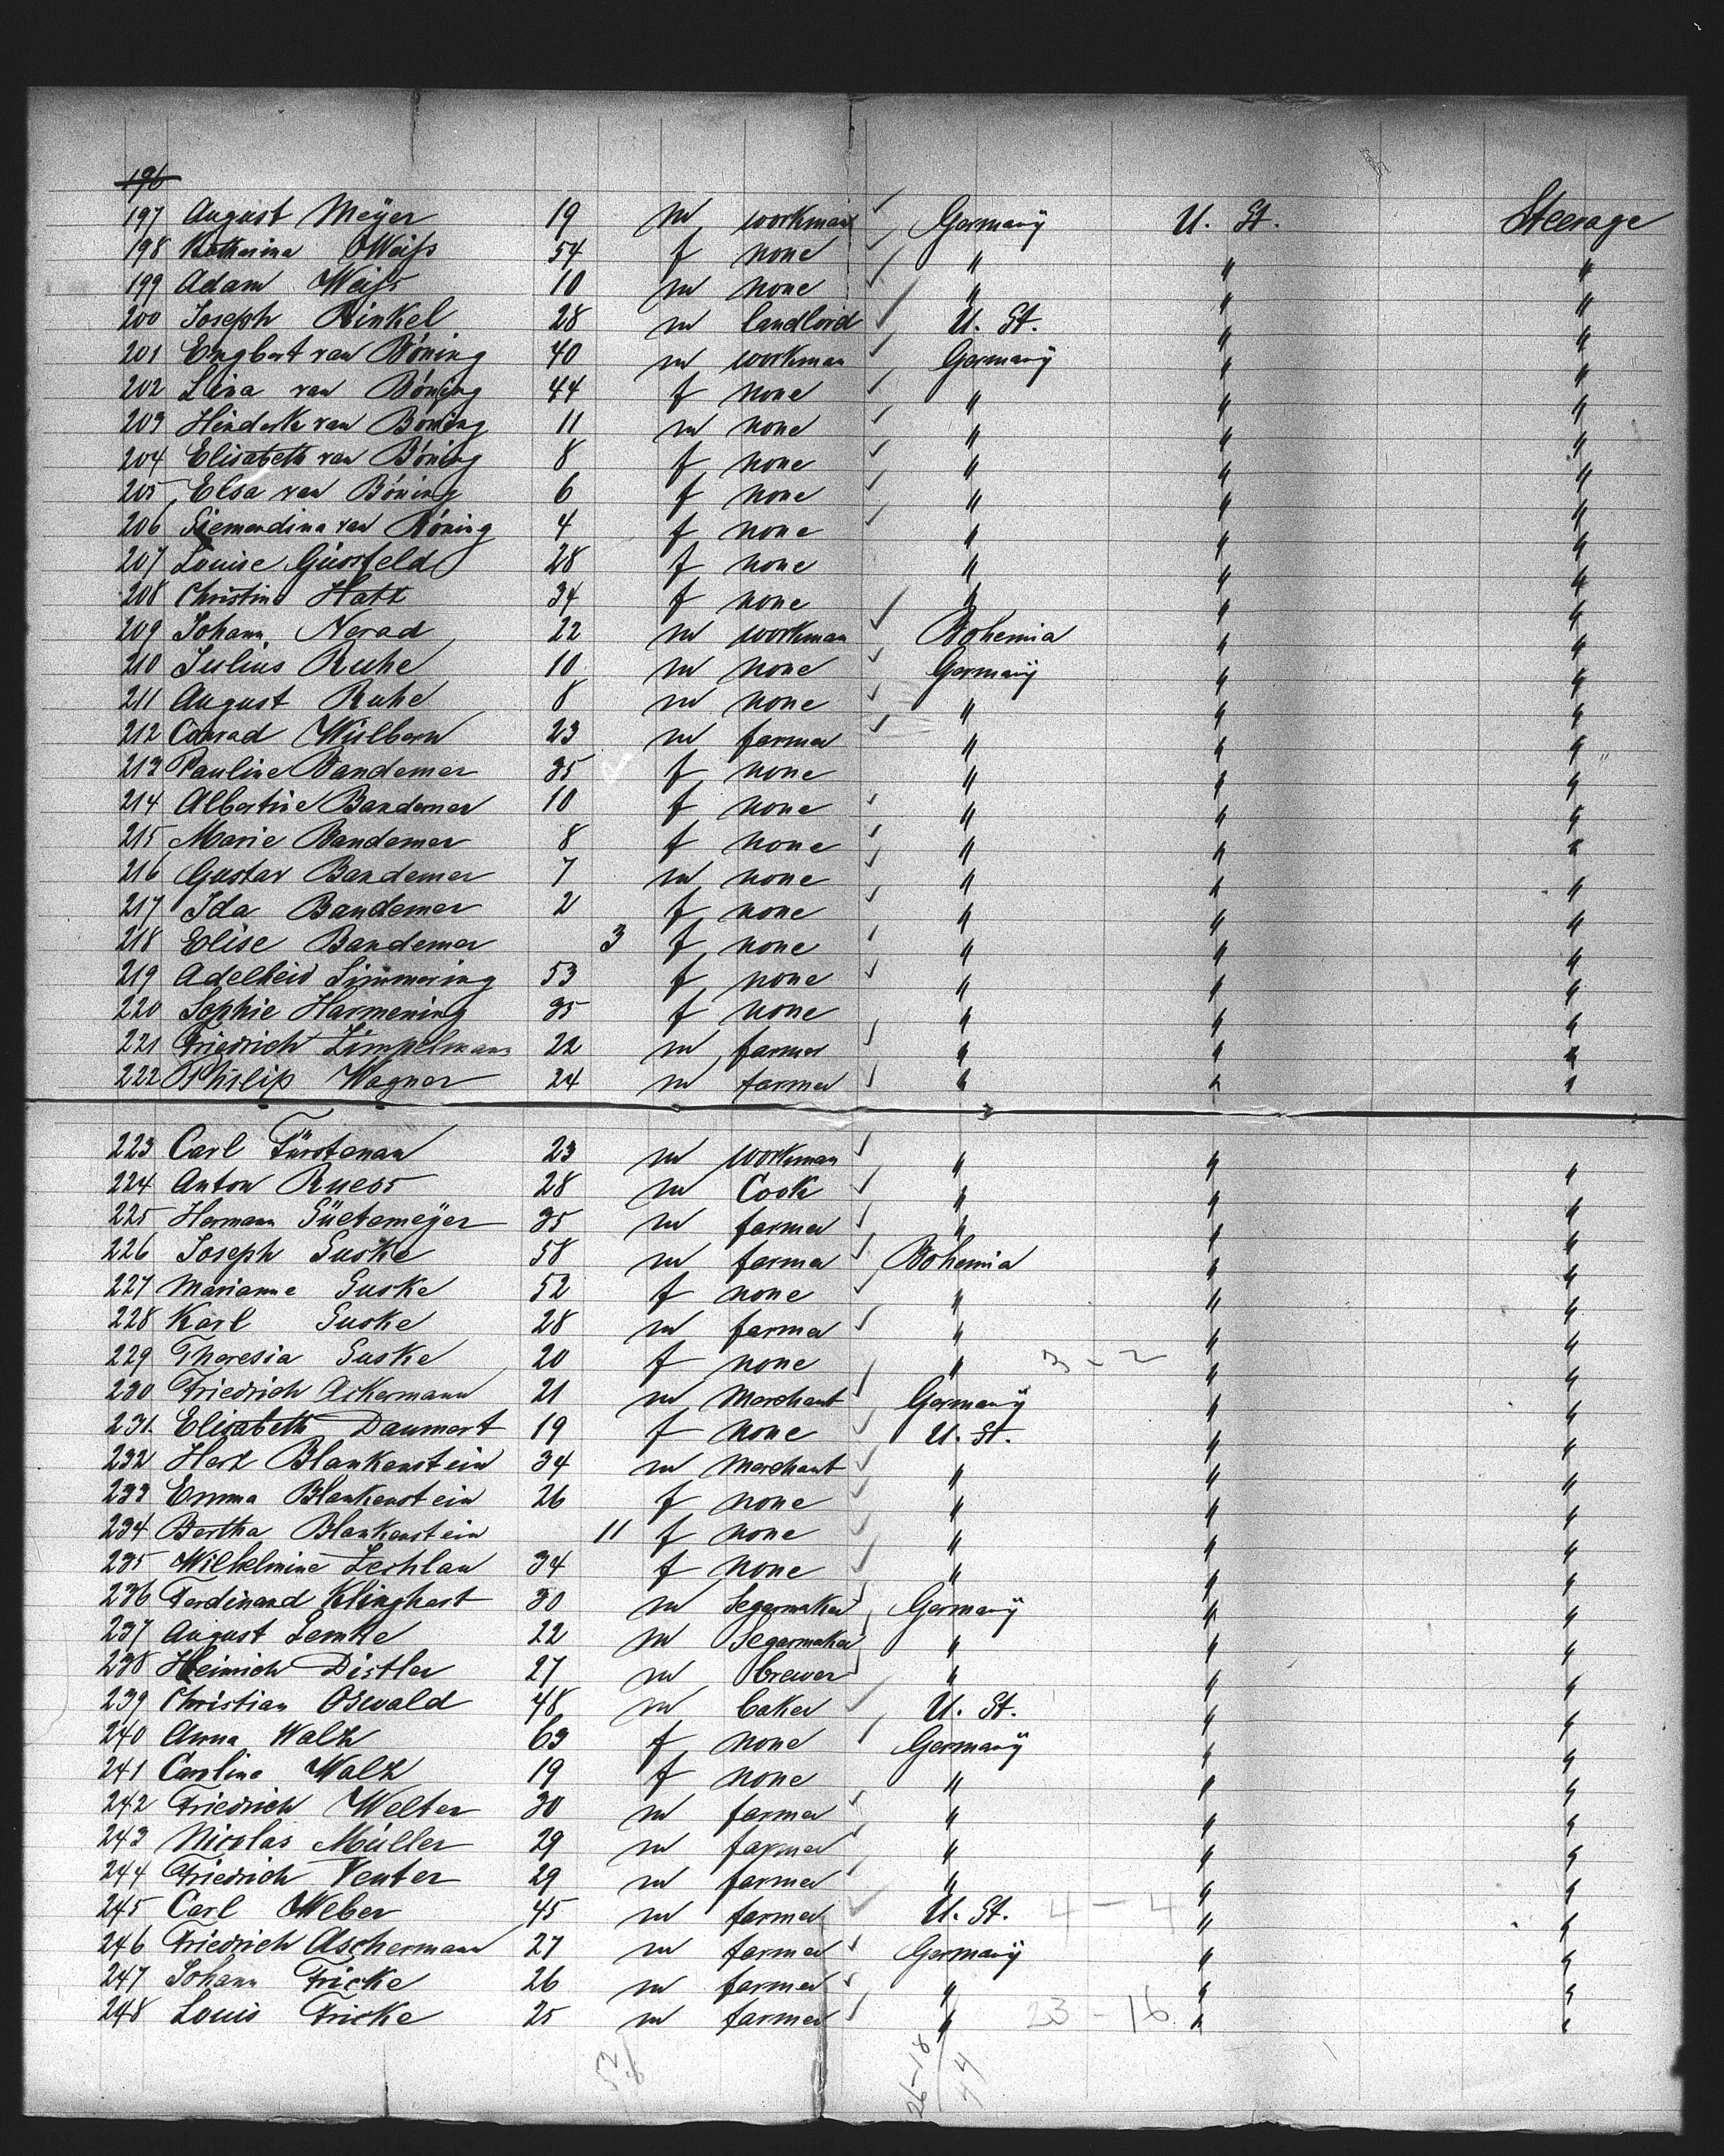 196
197 August Meÿer 19 m workman Germanÿ U. St. Steerage
198 Katharina Weiss 54 f none " " "
199 Adam Weiss 10 m none " " "
200 Joseph Rinkel 28 m landlord U. St. " "
201 Engbert van Böning 40 m workman Germanÿ " "
202 Lina van Böning 44 f none " " "
203 Hinderk van Böning 11 m none " " "
204 Elisabeth van Böning 8 f none " " "
205 Elsa van Böning 6 f none " " "
206 Siemendina van Böning 4 f none " " "
207 Louise Güssfeld 28 f none " " "
208 Christine Hatt 34 f none " " "
209 Johann Nerad 22 m workman Bohemia " "
210 Julius Ruhe 10 m none Germanÿ " "
211 August Ruhe 8 m none " " "
212 Conrad Wilbern 23 m farmer " " "
213 Pauline Bandemer 35 f none " " "
214 Albertine Bandemer 10 f none " " "
215 Marie Bandemer 8 f none " " "
216 Gustav Bandemer 7 m none " " "
217 Ida Bandemer 2 f none " " "
218 Elise Bandemer 3 f none " " "
219 Adelheid Simmering 53 f none " " "
220 Sophie Harmening 35 f none " " "
221 Friedrich Zimpelmann 22 m farmer " " "
222 Philip Wagner 24 m farmer " " "
223 Carl Fürstenau 23 m workman " " "
224 Anton Ruess 28 m Cook " " "
225 Hermann Süetemeÿer 35 m farmer " " "
226 Joseph Suske 58 m farmer Bohemia " "
227 Marianne Suske 52 f none " " "
228 Karl Suske 28 m farmer " " "
229 Theresia Suske 20 f none " 3-2 " "
230 Friedrich Ackermann 21 m Merchant Germanÿ " "
231. Elisabeth Daumert 19 f none U. St. " "
232 Herz Blankenstein 34 m Merchant " " "
233 Emma Blankenstein 26 f none " " "
234 Bertha Blankenstein 11 f none " " "
235 Wilhelmine Zechlau 34 f none " " "
236 Ferdinand Klinghart 30 m Segarmaker Germanÿ " "
237 August Lemke 22 m Segarmaker " " "
238 Heinrich Distler 27 m brewer " " "
239 Christian Oswald 48 m baker U. St. " "
240 Anna Walz 63 f none Germanÿ " "
241 Caroline Walz 19 f none " " "
242 Friedrich Welter 30 m farmer " " "
243 Nicolas Müller 29 m farmer " " "
244 Friedrich Venter 29 m farmer " " "
245 Carl Weber 45 m farmer U. St. 4-4 " "
246 Friedrich Aschermann 27 m farmer Germanÿ " "
247 Johann Fricke 26 m farmer " " "
248 Louis Fricke 25 m farmer " 23-16 " "
26-18
44